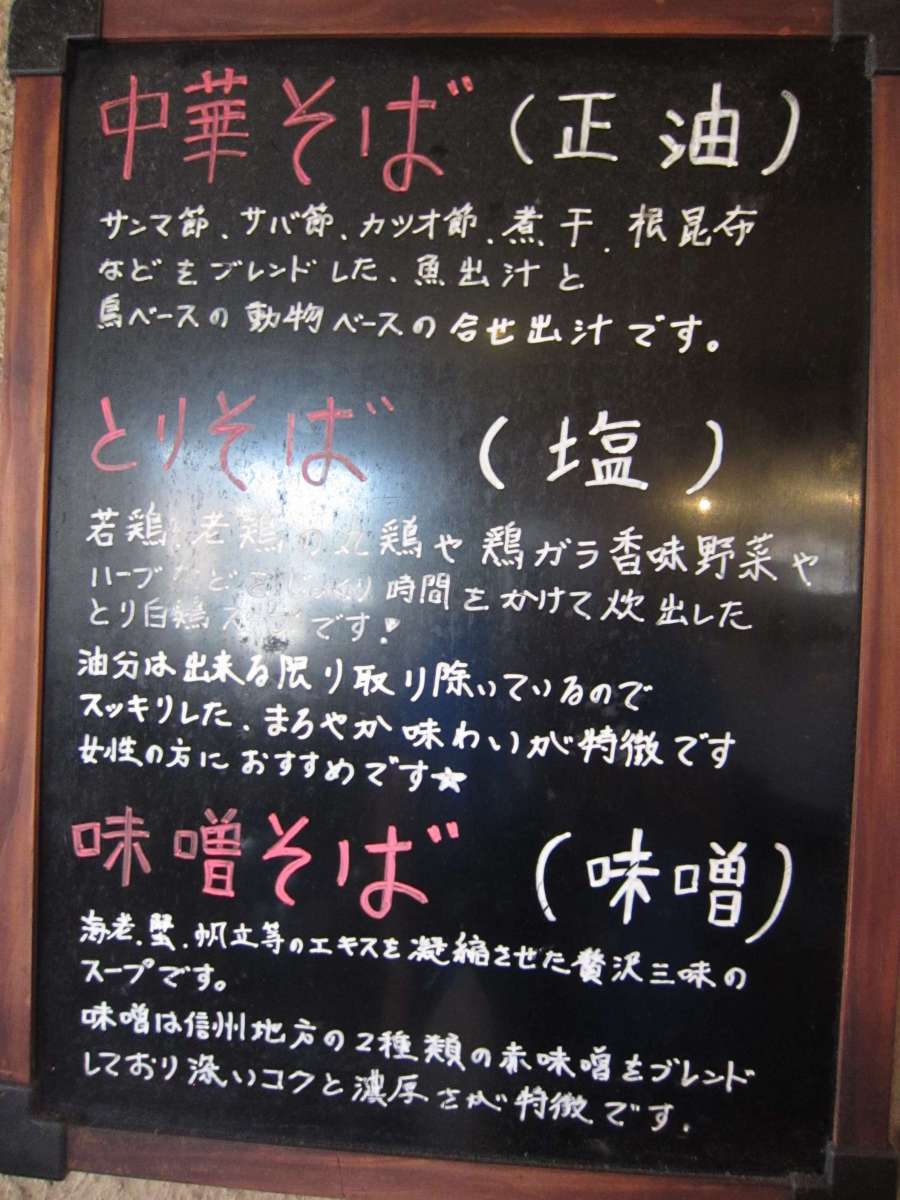 中華そば (正油)
サンマ節、サバ節、カツオ節、煮干、根昆布
などをブレンドした、魚出汁と
鳥ベースの動物ベースの合せ出汁です。
とりそば (塩)
若鶏、老鶏の丸鶏や鶏ガラ香味野菜や
ハーブなどをじっくり時間をかけて炊出した
とり白鶏です!
油分は出来る限り取り除いているので
スッキリした、まろやか味わいが特徴です
女性の方におすすめです★
味噌そば (味噌)
海老、蟹、帆立等のエキスを凝縮させた贅沢三味の
スープです。
味噌は信州地方の2種類の赤味噌をブレンド
しており深いコクと濃厚さが特徴です.